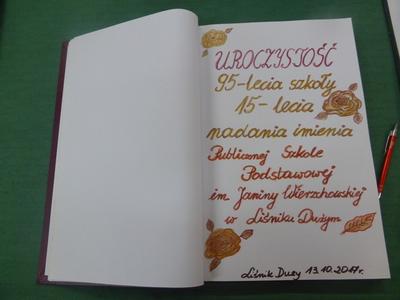 UROCZYSTOŚĆ
95-lecia szkoły
15-lecia
nadania imienia
Publicznej Szkole
Podstawowej
im. Janiny Wierzchowskiej
w Liśniku Dużym
Liśnik Duży 13.10.2017r.